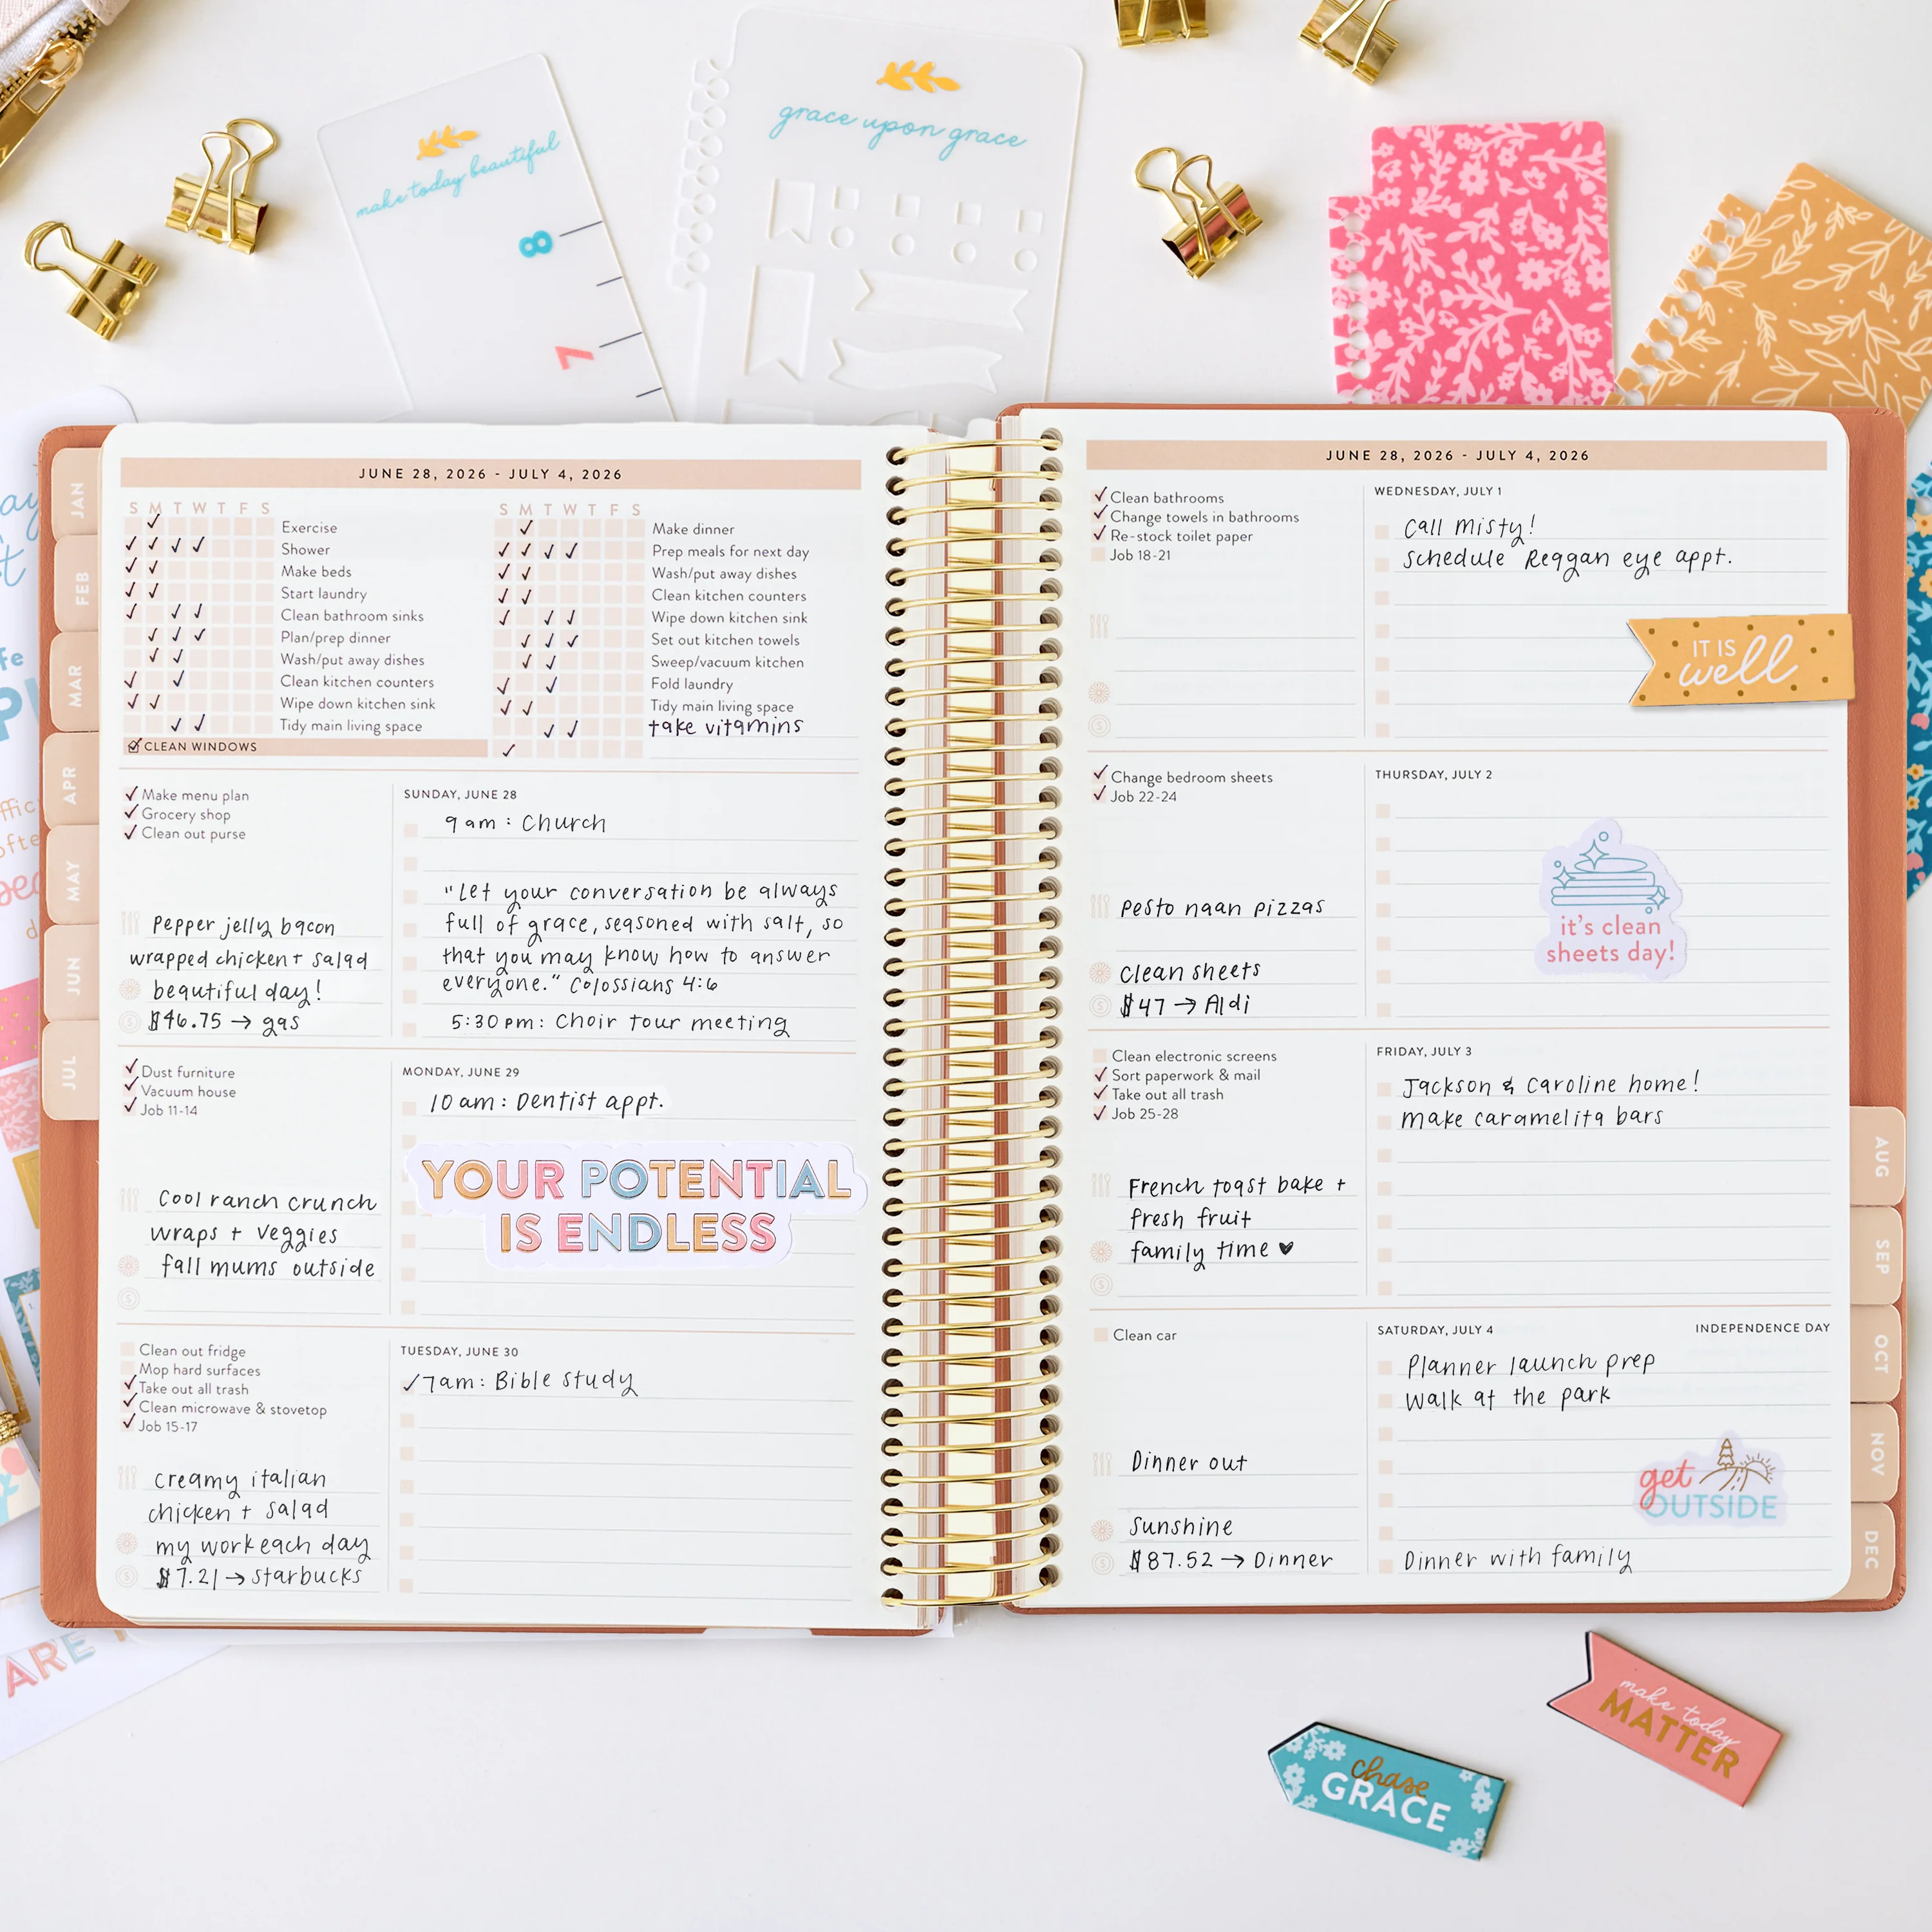 make today beautiful
8
7
grace upon grace
JAN
FEB
MAR
APR
MAY
JUN
JUL
JUNE 28, 2026 - JULY 4, 2026
S M T W T F S
Exercise
Shower
Make beds
Start laundry
Clean bathroom sinks
Plan/prep dinner
Wash/put away dishes
Clean kitchen counters
Wipe down kitchen sink
Tidy main living space
CLEAN WINDOWS
S M T W T F S
Make dinner
Prep meals for next day
Wash/put away dishes
Clean kitchen counters
Wipe down kitchen sink
Set out kitchen towels
Sweep/vacuum kitchen
Fold laundry
Tidy main living space
take vitamins
Make menu plan
Grocery shop
Clean out purse
Pepper jelly bacon
wrapped chicken + salad
beautiful day!
$46.75 → gas
SUNDAY, JUNE 28
9 am: Church
"Let your conversation be always
full of grace, seasoned with salt, so
that you may know how to answer
everyone." Colossians 4:6
5:30 pm: Choir tour meeting
Dust furniture
Vacuum house
Job 11-14
Cool ranch crunch
wraps + veggies
fall mums outside
$
MONDAY, JUNE 29
10 am: Dentist appt.
YOUR POTENTIAL
IS ENDLESS
Clean out fridge
Mop hard surfaces
Take out all trash
Clean microwave & stovetop
Job 15-17
creamy italian
chicken + salad
my work each day
$7.21 → starbucks
TUESDAY, JUNE 30
7am: Bible study
JUNE 28, 2026 - JULY 4, 2026
Clean bathrooms
Change towels in bathrooms
Re-stock toilet paper
Job 18-21
$
WEDNESDAY, JULY 1
call misty!
schedule Reagan eye appt.
IT IS
well
Change bedroom sheets
Job 22-24
pesto naan pizzas
clean sheets
$47 → Aldi
THURSDAY, JULY 2
it's clean
sheets day!
Clean electronic screens
Sort paperwork & mail
Take out all trash
Job 25-28
French toast bake +
fresh fruit
family time ♥
$
FRIDAY, JULY 3
Jackson & Caroline home!
make caramelita bars
Clean car
Dinner out
sunshine
$87.52 → Dinner
SATURDAY, JULY 4
INDEPENDENCE DAY
Planner launch prep
walk at the park
get
OUTSIDE
Dinner with family
AUG
SEP
OCT
NOV
DEC
ARE
make today
MATTER
chase
GRACE